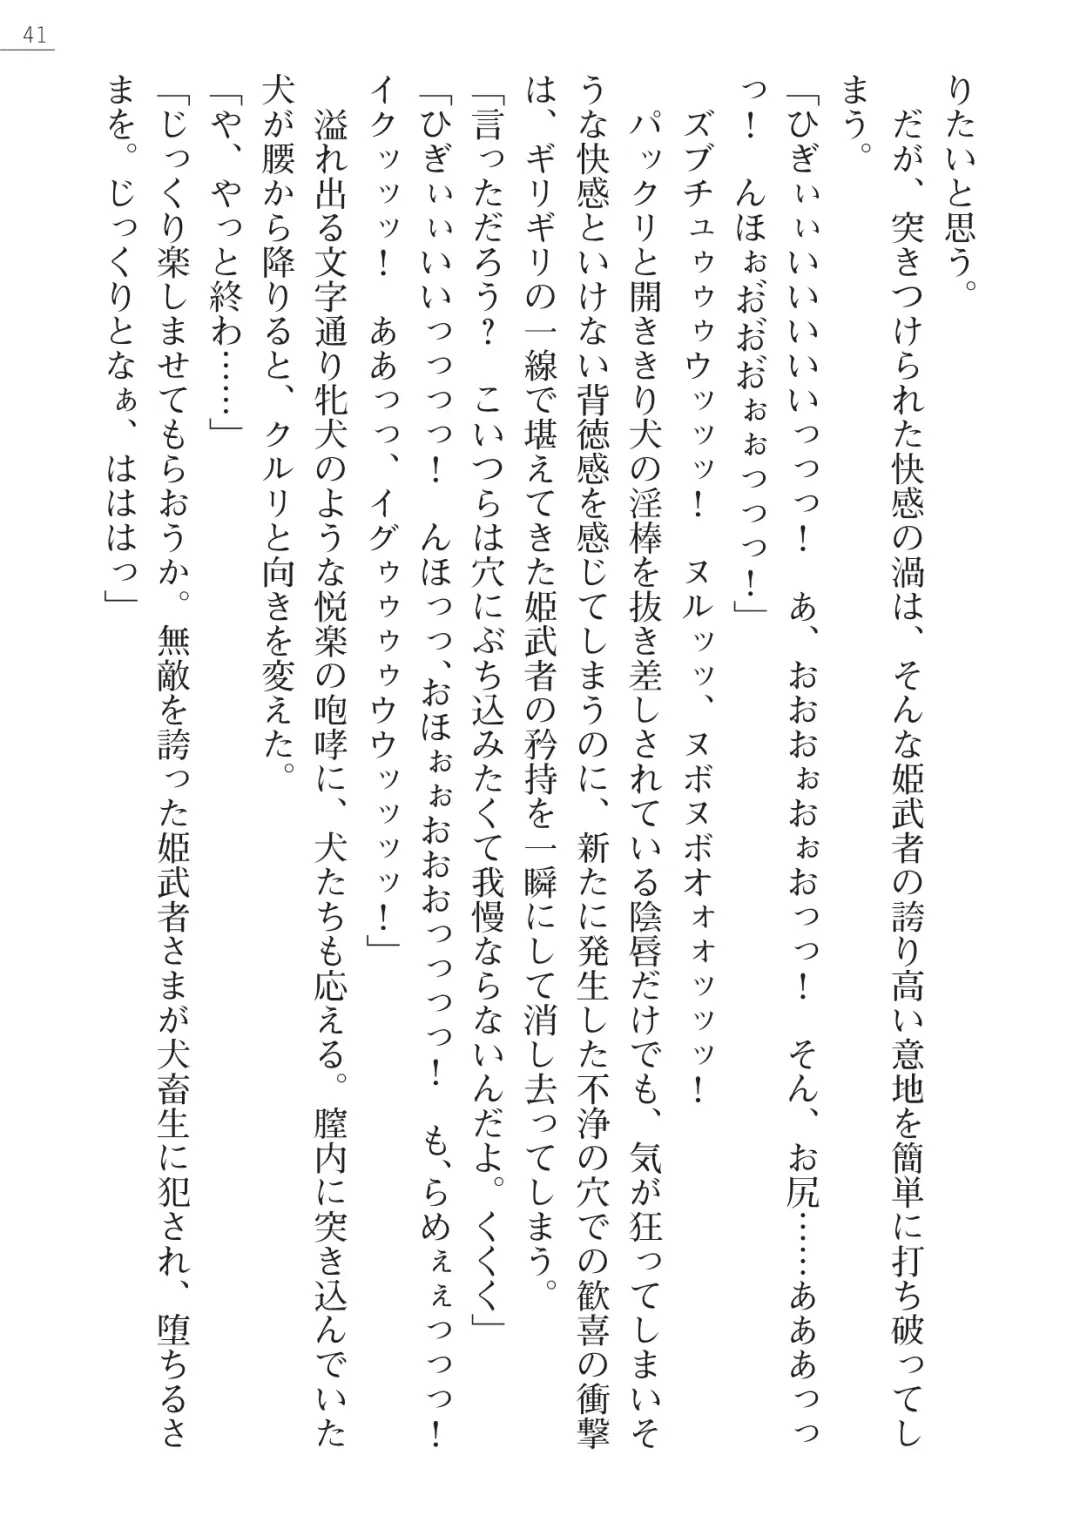 41
りたいと思う。
だが、突きつけられた快感の渦は、そんな姫武者の誇り高い意地を簡単に打ち破ってし
まう。
「ひぎぃぃいいいいいっっっ！　あ、おおおぉおぉおっっ！　そん、お尻……あああっっ
っ！　んほぉお゙お゙お゙ぉぉっっっ！」
ズブチュゥゥゥウッッッ！　ヌルッッ、ヌボヌボオォォッッッ！
パックリと開ききり犬の淫棒を抜き差しされている陰唇だけでも、気が狂ってしまいそ
うな快感といけない背徳感を感じてしまうのに、新たに発生した不浄の穴での歓喜の衝撃
は、ギリギリの一線で堪えてきた姫武者の矜持を一瞬にして消し去ってしまう。
「言っただろう？　こいつらは穴にぶち込みたくて我慢ならないんだよ。くくく」
「ひぎぃぃいいっっっっ！　んほっっ、おほぉぉおおおっっっっ！　も、らめぇぇっっっ！
イクッッッ！　ああっっ、イグゥゥゥゥウウッッッッ！」
溢れ出る文字通り牝犬のような悦楽の咆哮に、犬たちも応える。膣内に突き込んでいた
犬が腰から降りると、クルリと向きを変えた。
「や、やっと終わ……」
「じっくり楽しませてもらおうか。無敵を誇った姫武者さまが犬畜生に犯され、堕ちるさ
まを。じっくりとなぁ、はははっ」